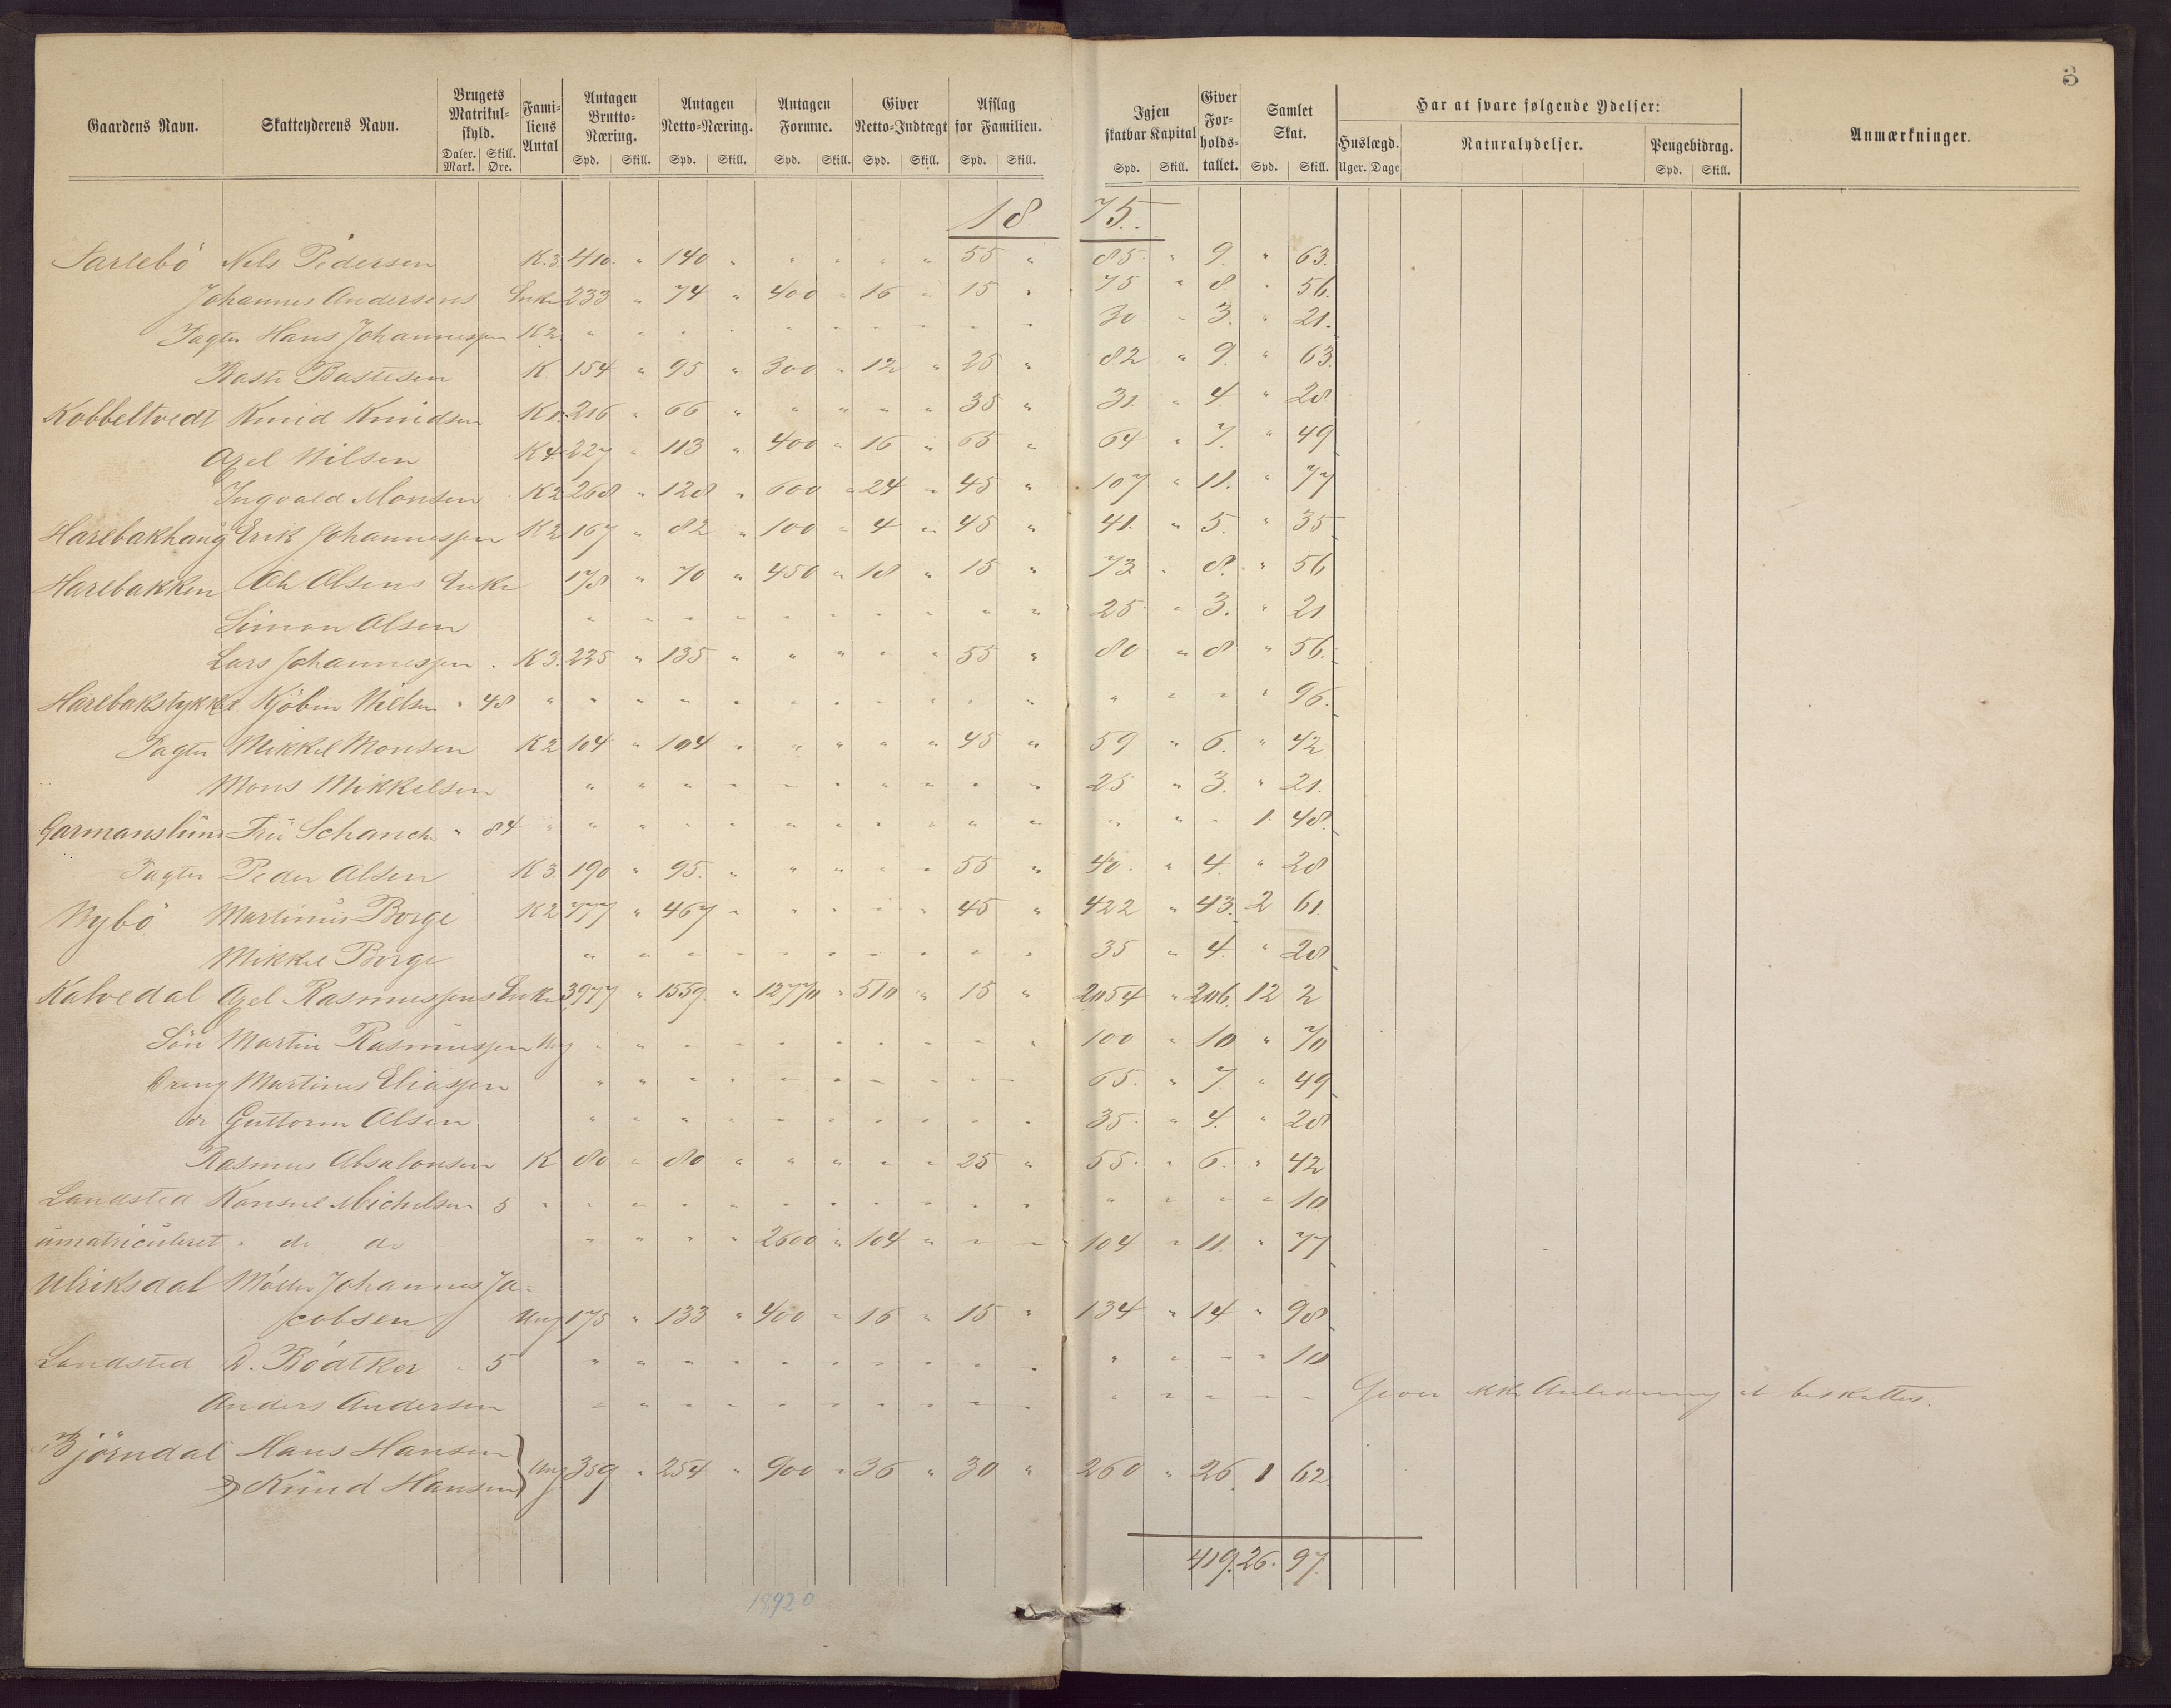 3
Gaardens Navn. Skatteyderens Navn. Brugets Matrikul-skyld. Fami-liens Antal Antagen Brutto-Næring. Antagen Netto-Næring. Antagen Formue. Giver Netto-Indtægt Afslag for Familien. Igjen skatbar Kapital Giver For-holds-tallet. Samlet Skat. Har at svare følgende Ydelser: Anmærkninger.
Huslægd. Naturalydelser. Pengebidrag.
Daler. Skill. Spd. Skill. Spd. Skill. Spd. Skill. Spd. Skill. Spd. Skill. Spd. Skill. Spd. Skill. Uger. Dage Spd. Skill.
Mark. Øre.
1875.
Sarlebö Nils Pedersen K. 3. 410. " 140 " " " " " 55 " 85. " 9. " 63.
Johannes Andersens Enke 233 " 74 " 400 " 16 " 15 " 75 " 8 " 56.
Pagter Hans Johannessen K 2 " " " " " " " " " " 30 " 3. " 21.
Baste Bastesen K. 154 " 95 " 300 " 12 " 25 " 82 " 9. " 63.
Kobbeltvedt Knud Knudsen K 1. 216 " 66 " " " " " 35 " 31. " 4. " 28
Axel Nilsen K 4. 227 " 113 " 400 " 16 " 65 " 64 " 7. " 49
Ingvald Monsen K 2 268 " 128 " 600 " 24 " 45 " 107 " 11. " 77
Harebakhaug Erik Johannessen K 2 167 " 82 " 100 " 4 " 45 " 41. " 5. " 35
Harebakken Ole Olsens Enke 178 " 70 " 450 " 18 " 15 " 73 " 8. " 56
Simon Olsen " " " " " " " " " " 25 " 3. " 21
Lars Johannessen K 3. 235 " 135 " " " " " 55 " 80 " 8 " 56.
Harebakstykket Kjöben Nielsen " 48 " " " " " " " " " " " " " " " 96.
Pagter Mikkel Monsen K 2 104 " 104 " " " " " 45 " 59 " 6. " 42
Mons Mikkelsen " " " " " " " " " " 25 " 3. " 21.
Garmanslund Fru Schanche " 84 " " " " " " " " " " " " " " 1. 48.
Pagter Peder Olsen K 3. 190 " 95. " " " " " 55 " 40. " 4. " 28
Nybö Martinus Borge K 2 777 " 467 " " " " " 45 " 422 " 43. 2 61.
Mikkel Borge " " " " " " " " " " 35 " 4. " 28
Kalvedal Axel Rasmussens Enke 3977 " 1559 " 12770 " 510 " 15 " 2054 " 206. 12 2
Sön Martin Rasmussen Ung " " " " " " " " " " 100 " 10 " 70
Dreng Martinus Eliassen " " " " " " " " " " 65. " 7. " 49
do Guttorm Olsen " " " " " " " " " " 35. " 4. " 28
Rasmus Absalonsen K 80 " 80 " " " " " 25 " 55. " 6. " 42
Landsted Konsul Michelsen 5 " " " " " " " " " " " " " " " 10
umatriculeret " do do " " " " 2600 " 104 " " " 104 " 11 " 77
Ulriksdal Möller Johannes Ja=
cobsen Ung 175 " 133 " 400 " 16 " 15 " 134 " 14 " 98
Landsted D. Bödtker " 5 " " " " " " " " " " " " " " 10
Anders Andersen " " " " " " " " " " " " " " " Giver ikke Anledning at beskattes.
Björndal Hans Hansen
& Knud Hansen } Ung 359 " 254 " 900 " 36 " 30 " 260 " 26. 1 62.
419. 26. 97.
18920